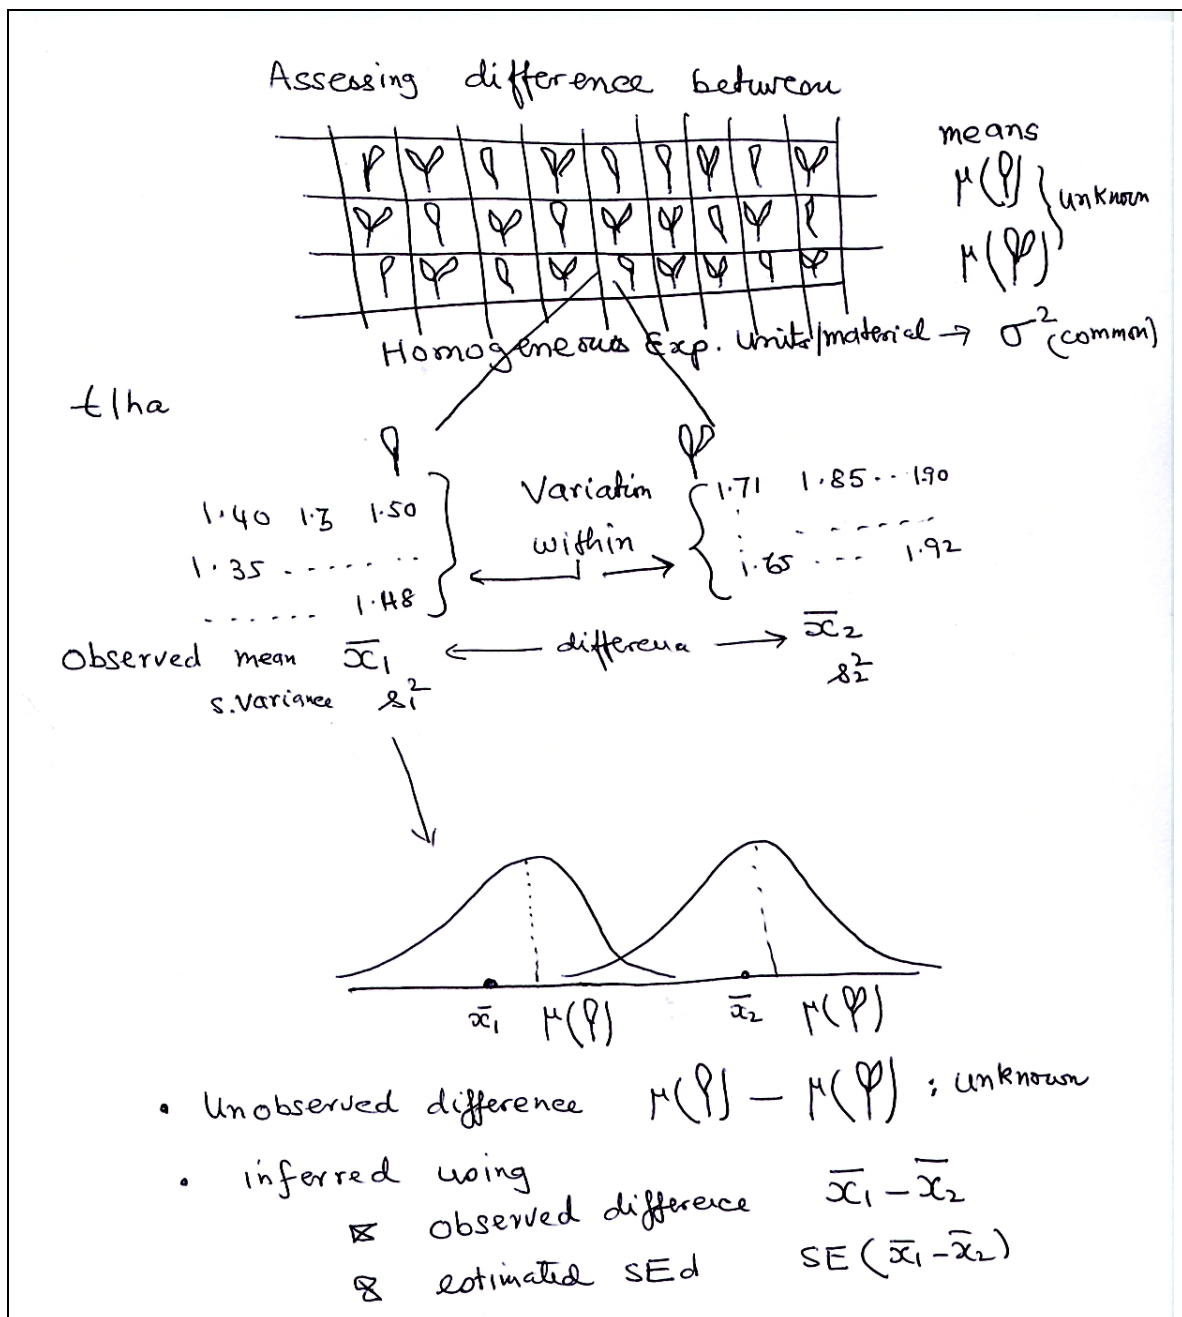 Assessing difference between
means
μ( )
unknown
μ( )
Homogeneous Exp. units/material → σ² (common)
t/ha
1.40 1.3 1.50
1.35 ........
...... 1.48
Variation
within
1.71 1.85... 1.90
1.65 ... 1.92
Observed mean x̄₁ ← difference → x̄₂
s.variance s₁² s₂²
x̄₁ μ( ) x̄₂ μ( )
• Unobserved difference μ( ) – μ( ) : unknown
• inferred using
observed difference x̄₁ – x̄₂
estimated SEd SE(x̄₁ – x̄₂)